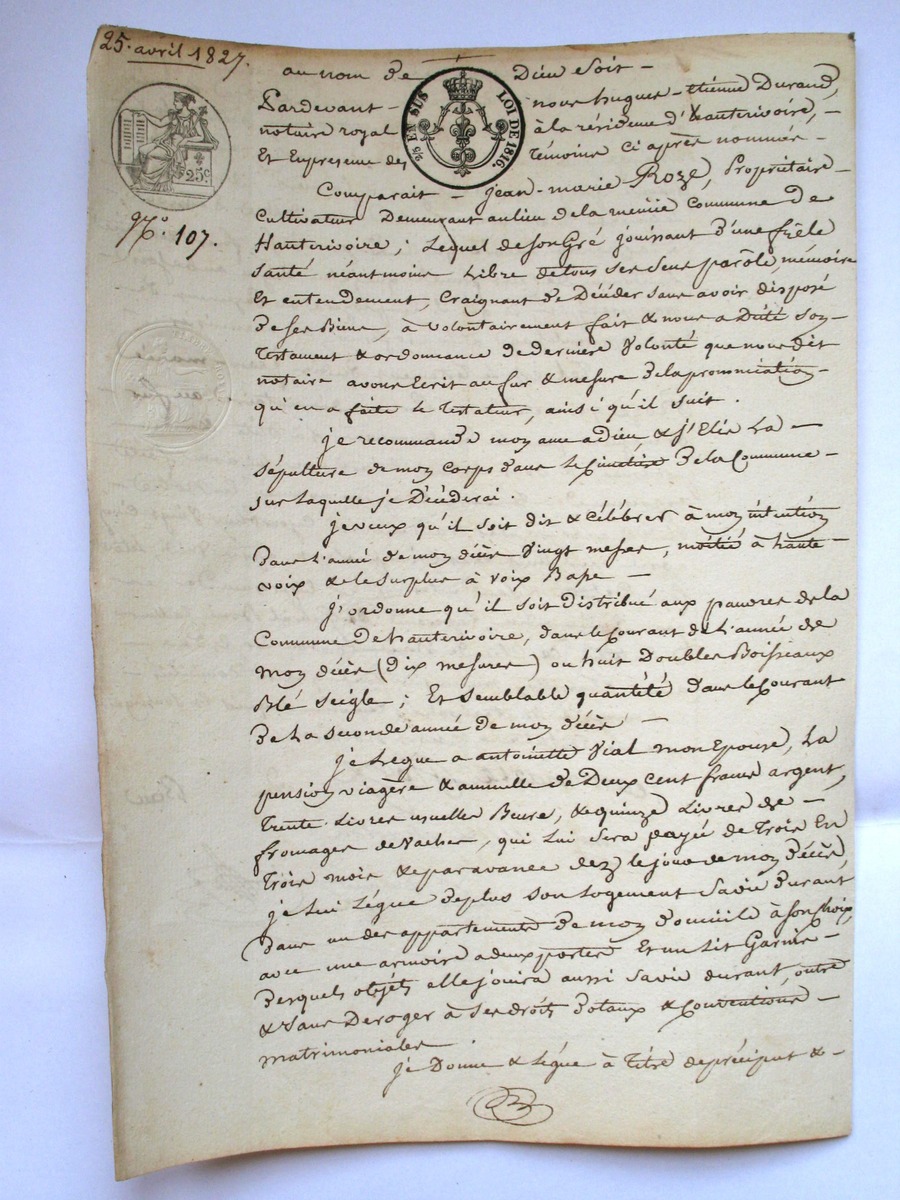 25. avril 1827.
au nom de Dieu soit -
Pardevant - nous hugues - étienne Durand,
notaire royal à la résidence d'hauterivoire, -
Et En presence des témoins ci après nommés -
2/5 EN SUS LOI DE 1816.
25c
No. 107.
Comparait - jean-marie Roze, Propriétaire -
Cultivateur Demeurant au lieu de la commune De
Hauterivoire; Lequel de son Gré jouissant D'une frêle
santé néantmoins Libre de tous ses sens parôle, mémoire
Et entendement, Craignant De Décéder sans avoir disposé
De ses Biens, à volontairement fait & nous a Dicté son -
Testament & ordonnance De derniere Volonté que nous dit
notaire avons Ecrit au fur & mesure De la prononciation -
qu'en a faite le Testateur, ainsi qu'il suit.
je recommande mon ame a dieu, & j'Elis La -
sépulture de mon corps Dans Le Cimetière De la Commune -
sur laquelle je Décéderai.
je veux qu'il soit dit & célébrer à mon intention
Dans L'année De mon décès Vingt messes, moitié à haute
voix & le surplus à voix Basse -
j'ordonne qu'il soit distribué aux pauvres de la
Commune De hauterivoire, dans le Courant de L'année de
mon décès (dix mesures) ou huit Doubles Boisseaux
Blé seigle; Et semblable quantété dans le Courant
De La seconde année De mon Décès -
je Legue a antoinette Vial mon Epouse, La
pension viagère & annuelle De Deux cent francs argent,
Trente Livres usuelles Beure, & quinze Livres De -
fromages de Vaches, qui Lui sera payée de Trois En
Trois mois & par avance dez le jour de mon Décès,
je Lui Légue De plus son Logement sa vie Durant
Dans un des appartements De mon Domicile à son choix,
avec une armoire a deux portes Et un Lit Garnis -
Desquels objets elle jouira aussi sa vie durant, outre
& sans Deroger à ses droits Dotaux & Conventions -
matrimoniales
je Donne & Légue à Titre de préciput & -